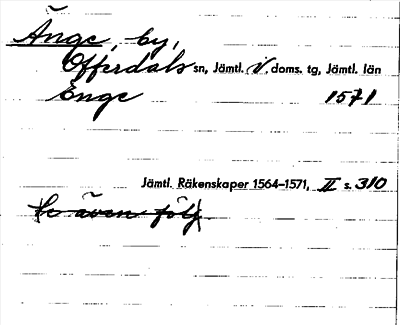 Änge, by,
Offerdals sn, Jämtl. V. doms. tg, Jämtl. län
Enge 1571
Jämtl. Räkenskaper 1564–1571, II s. 310
Se även följ